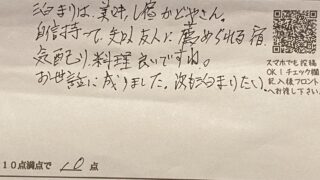 泊まりは、美味し宿かどやさん。
自信持って、知人友人に薦められる宿
気配り、料理良いですね。
お世話に成りました。次も泊まりたい。
スマホでも投稿
OK!チェック欄
記入後フロント
へお渡し下さい。
10点満点で 10 点